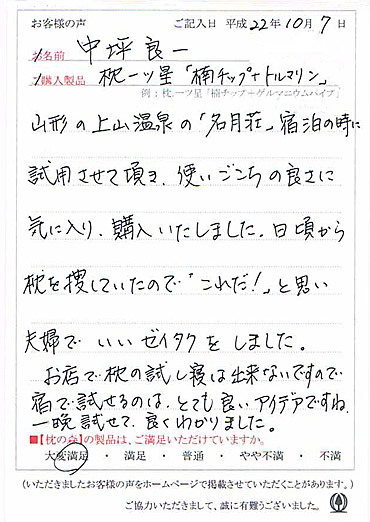 お客様の声 ご記入日 平成22年10月7日
お名前 中坪良一
ご購入製品 枕一ツ星「楠チップ+トルマリン」
例：枕.一ツ星「楠チップ+ゲルマニウムパイプ」
山形の上山温泉の「名月荘」宿泊の時に
試用させて頂き、使いごこちの良さに
気に入り、購入いたしました。日頃から
枕を捜していたので「これだ!」と思い
夫婦で いい ゼイタク を しました。
お店で枕の試し寝は出来ないですので
宿で試せるのは、とても良いアイデアですね、
一晩試せて、良くわかりました。
■【枕の森】の製品は、ご満足いただけていますか。
大変満足 ・ 満足 ・ 普通 ・ やや不満 ・ 不満
(いただきましたお客様の声をホームページで掲載させていただくことがあります。)
ご協力いただきまして、誠に有難うございました。